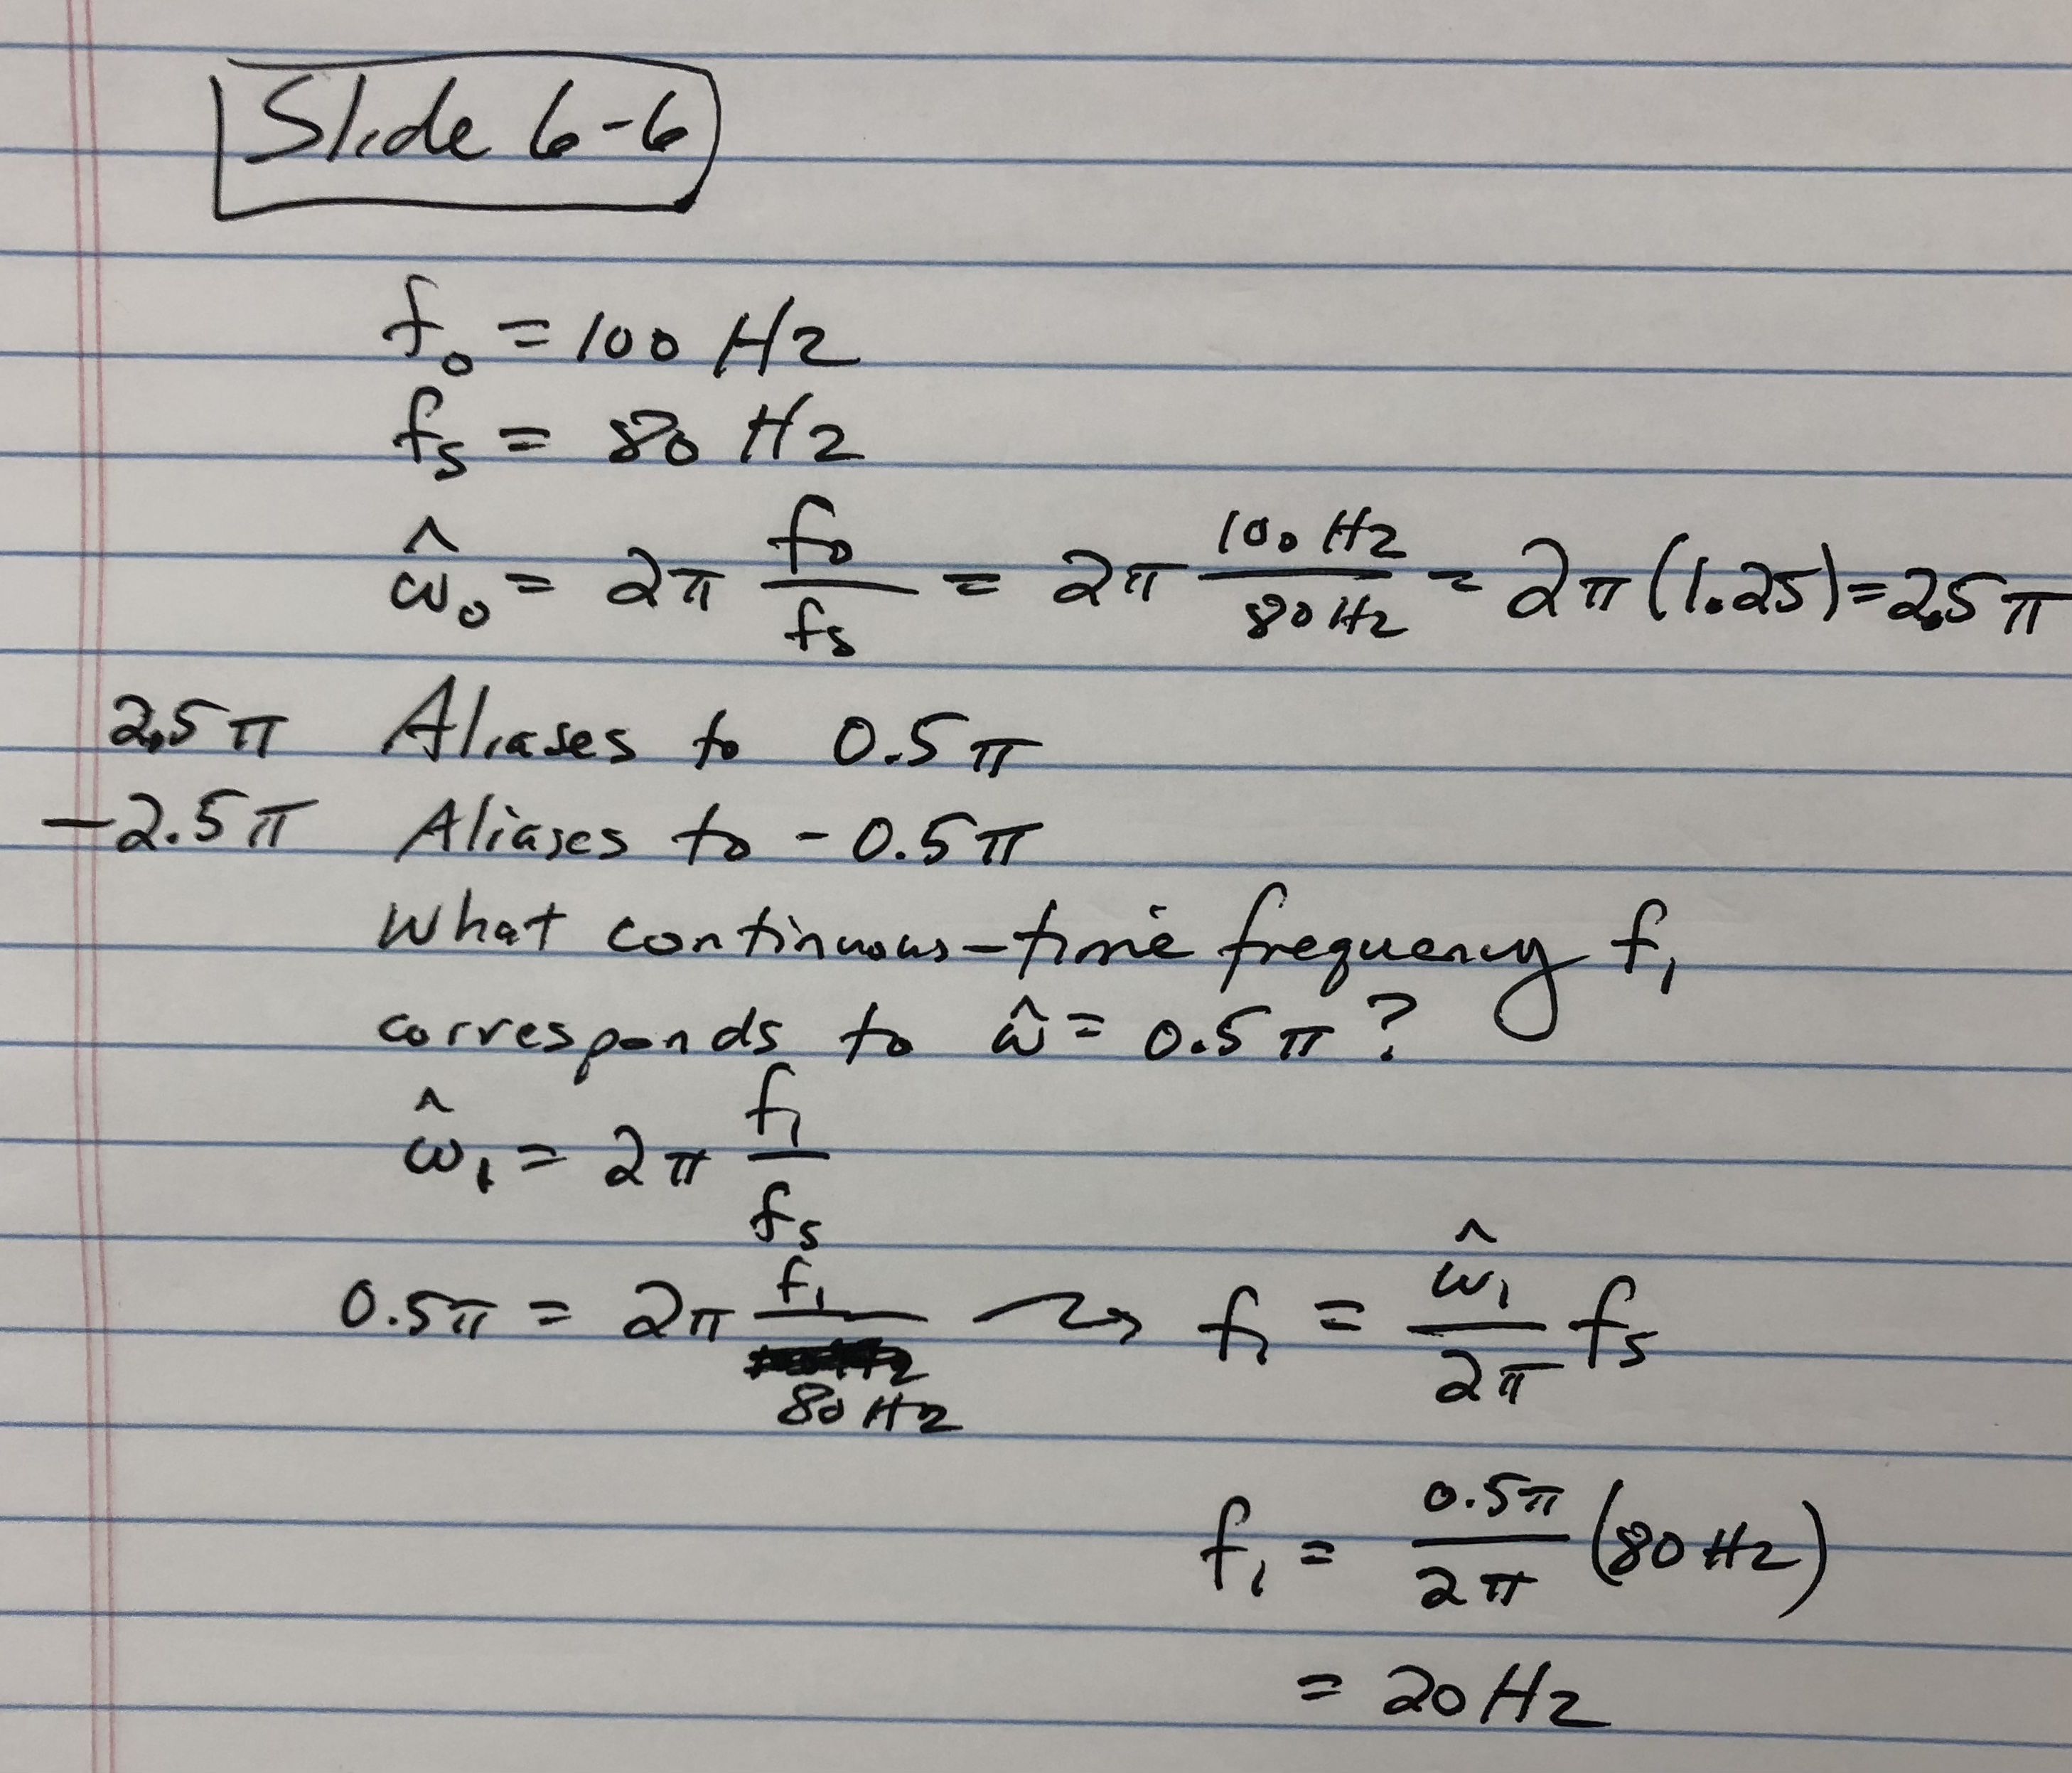 Slide 6-6
f₀ = 100 Hz
fₛ = 80 Hz
ω̂₀ = 2π f₀/fₛ = 2π 100 Hz/80 Hz = 2π (1.25) = 2.5π
2.5π Aliases to 0.5π
-2.5π Aliases to -0.5π
What continuous-time frequency f₁
corresponds to ω̂ = 0.5π?
ω̂₁ = 2π f₁/fₛ
0.5π = 2π f₁/80 Hz ⇝ f₁ = ω̂₁/2π fₛ
f₁ = 0.5π/2π (80 Hz)
= 20 Hz